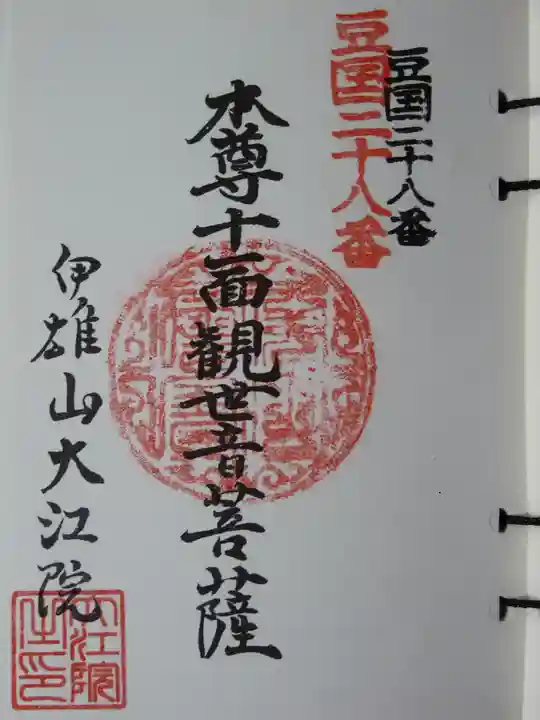 豆国二十八番
豆国二十八番
本尊十一面観世音菩薩
伊雄山大江院
大江院
主印